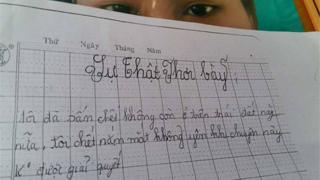 Thứ Ngày Tháng Năm
Sự thật phơi bày
Tôi đã sắn chết không còn ở trên trái đất này
nữa, tôi chết nắm mắt không yên khi chuyện này
K° được giải quyết